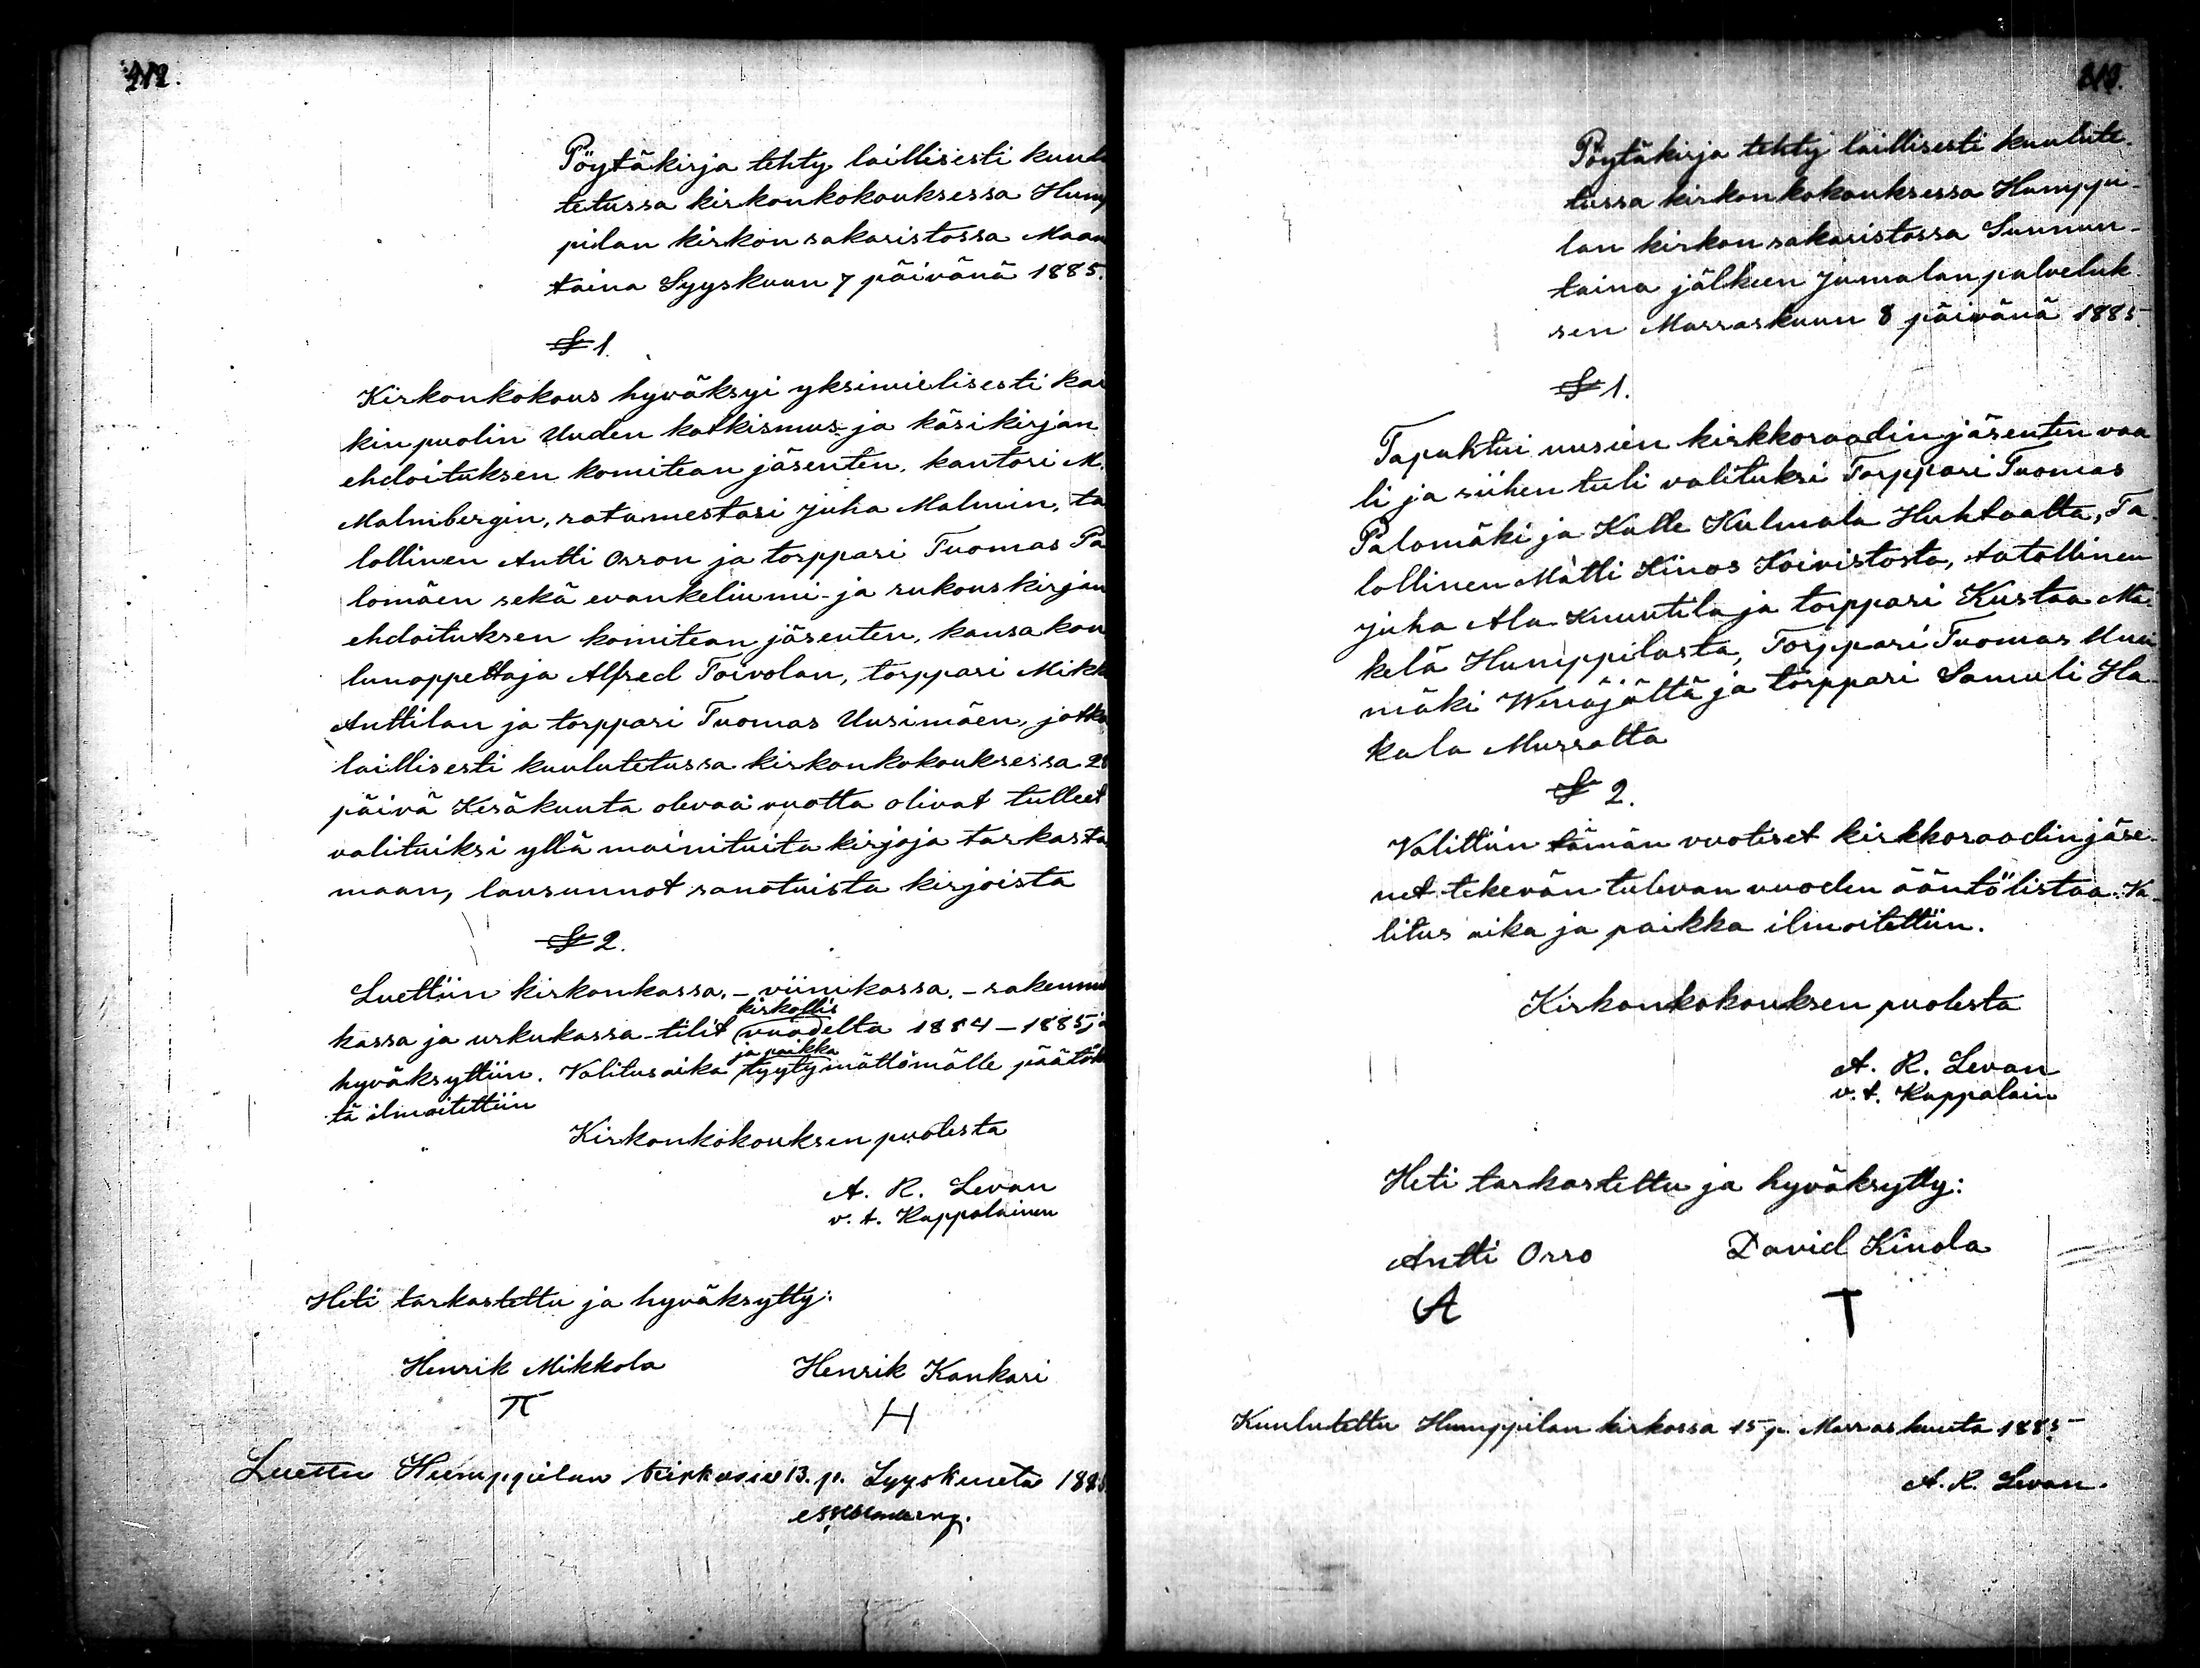 212.
Pöytäkirja tehty laillisesti kuulu
tetussa kirkonkokouksessa Hump
pilan kirkon sakaristossa Maan
taina Syyskuun 7 päivänä 1885.
§ 1.
Kirkonkokous hyväksyi yksimielisesti kai
kin puolin Uuden katkismus- ja käsikirjan
ehdoituksen komitean jäsenten, kantori M.
Malmbergin, ratamestari Juha Malmin, ta
lollinen Antti Orron ja torppari Tuomas Pa
lomäen sekä evankeliumi- ja rukouskirjan
ehdoituksen komitean jäsenten, kansakou
lunopettaja Alfred Toivolan, torppari Mikko
Anttilan ja torppari Tuomas Uusimäen, jotka
laillisesti kuulutetussa kirkonkokouksessa 28
päivä Kesäkuuta olevaa vuotta olivat tulleet
valituiksi yllä mainituita kirjoja tarkasta
maan, lausunnot sanotuista kirjoista
§ 2.
Luettiin kirkonkassa,- viinikassa,- rakennus
kirkollis
kassa ja urkukassa-tilit vuodelta 1884-1885 ja
ja paikka
hyväksyttiin. Valitusaika tyytymättömälle päätök
tä ilmoitettiin
Kirkonkokouksen puolesta
A. R. Levan
v. t. Kappalainen
Heti tarkastettu ja hyväksytty:
Henrik Mikkola Henrik Kankari
π H
Luettu Humppilan kirkossa 13. p. Syyskuuta 1885
Pöytäkirja tehty laillisesti kuulute-
tussa kirkonkokouksessa Humppi-
lan kirkon sakaristossa Sunnun-
taina jälkeen Jumalanpalveluk-
sen Marraskuun 8 päivänä 1885.
§ 1.
Tapahtui uusien kirkkoraadin jäsenten vaa
li ja siihen tuli valituksi Torppari Tuomas
Palomäki ja Kalle Kulmala Huhtaalta, Ta
lollinen Matti Kinos Koivistosta, talollinen
Juha Ala-Kuuntila ja torppari Kustaa Mä-
kelä Humppilasta, Torppari Tuomas Uusi
mäki Wenäjältä ja torppari Samuli Ha
kala Murrolta
§ 2.
Valittiin tämän vuotiset kirkkoraadin jäse-
net tekevän tulevan vuoden ääntölistaa. Va-
litus aika ja paikka ilmoitettiin.
Kirkonkokouksen puolesta
A. R. Levan
v. t. Kappalain
Heti tarkastettu ja hyväksytty:
Antti Orro David Kinola
A T
Kuulutettu Humppilan kirkossa 15 p. Marraskuuta 1885
A. R. Levan.